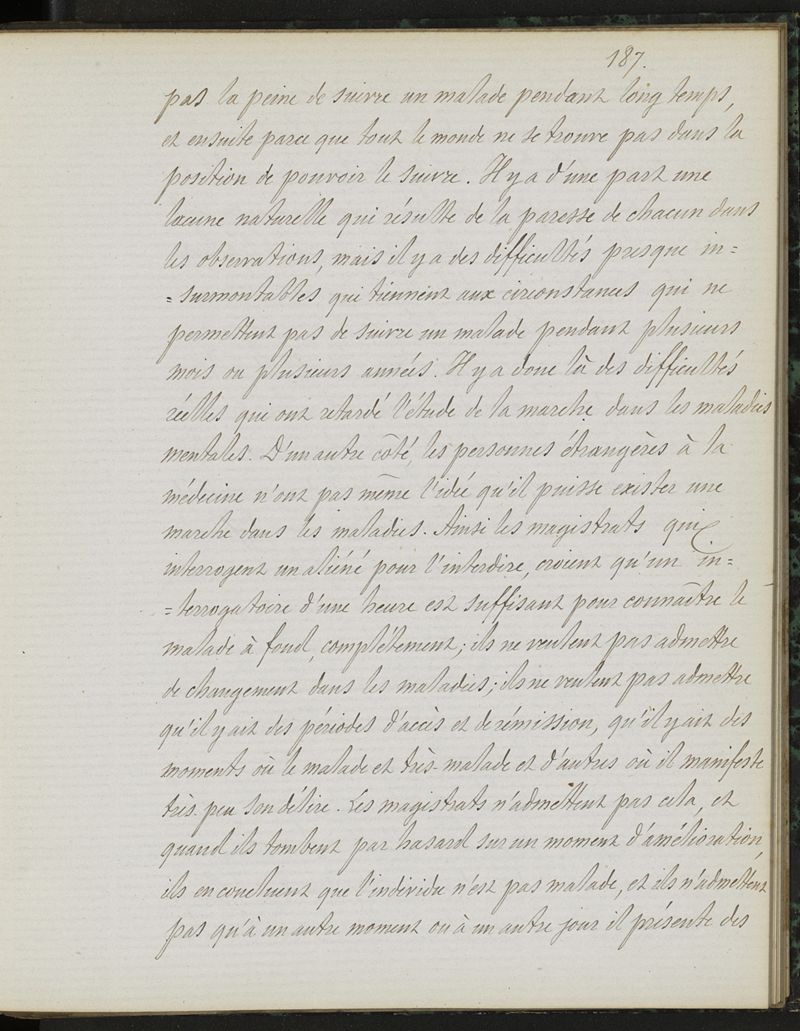 187.
pas la peine de suivre un malade pendant long temps,
et ensuite parce que tout le monde ne se trouve pas dans la
position de pouvoir le suivre. Il y a d'une part une
lacune naturelle qui résulte de la paresse de chacun dans
les observations, mais il y a des difficultés presque in=
=surmontables qui tiennent aux circonstances qui ne
permettent pas de suivre un malade pendant plusieurs
mois ou plusieurs années. Il y a donc là des difficultés
réelles qui ont retardé l'étude de la marche dans les maladies
mentales. D'un autre côté, les personnes étrangères à la
médecine n'ont pas même l'idée qu'il puisse exister une
marche dans les maladies. Ainsi les magistrats qui
interrogent un aliéné pour l'interdire, croient qu'un in=
=terrogatoire d'une heure est suffisant pour connaître le
malade à fond, complètement; ils ne veulent pas admettre
de changement dans les maladies; ils ne veulent pas admettre
qu'il y ait des périodes d'accès et de rémission, qu'il y ait des
moments où le malade et très-malade et d'autres où il manifeste
très-peu son délire. Les magistrats n'admettent pas cela, et
quand ils tombent par hasard sur un moment d'amélioration,
ils en concluent que l'individu n'est pas malade, et ils n'admettent
pas qu'à un autre moment ou à un autre jour il présente des